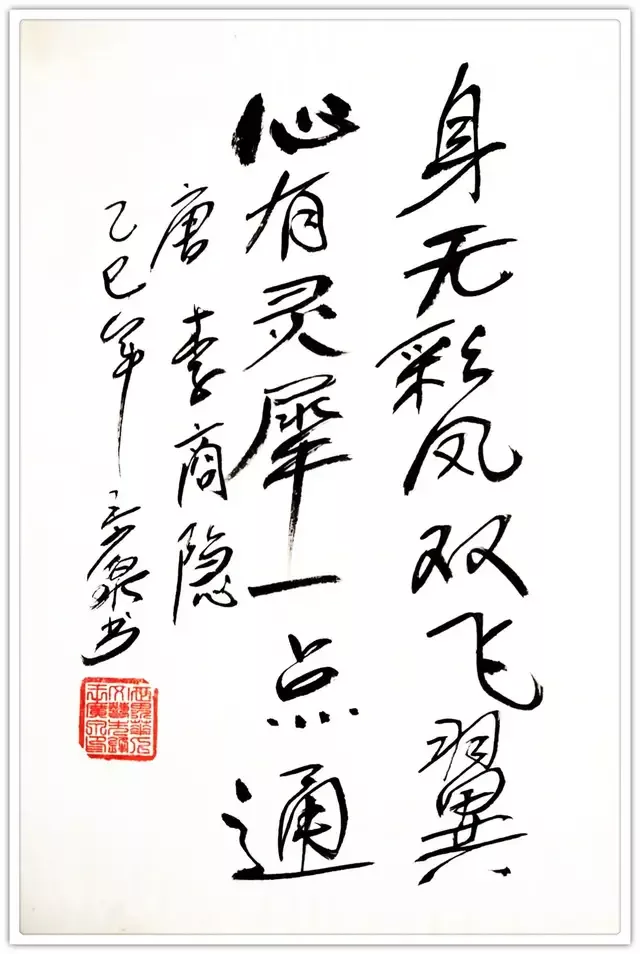 身无彩凤双飞翼
心有灵犀一点通
唐 李商隐
乙巳年 泉书